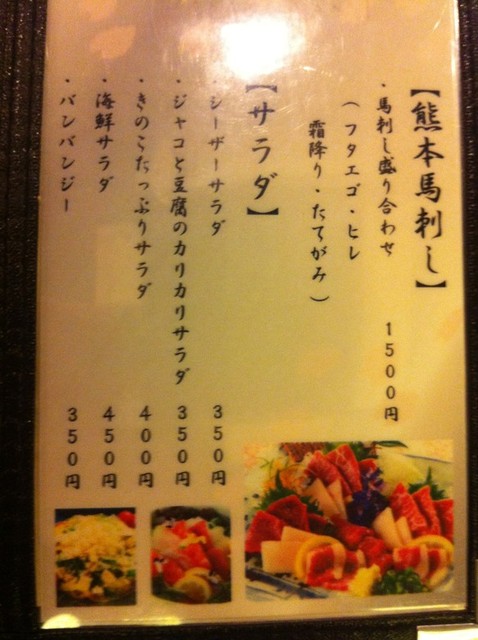 【熊本馬刺し】
・馬刺し盛り合わせ 1500円
（フタエゴ・ヒレ
霜降り・たてがみ）
【サラダ】
・シーザーサラダ 350円
・ジャコと豆腐のカリカリサラダ 350円
・きのこたっぷりサラダ 400円
・海鮮サラダ 450円
・バンバンジー 350円